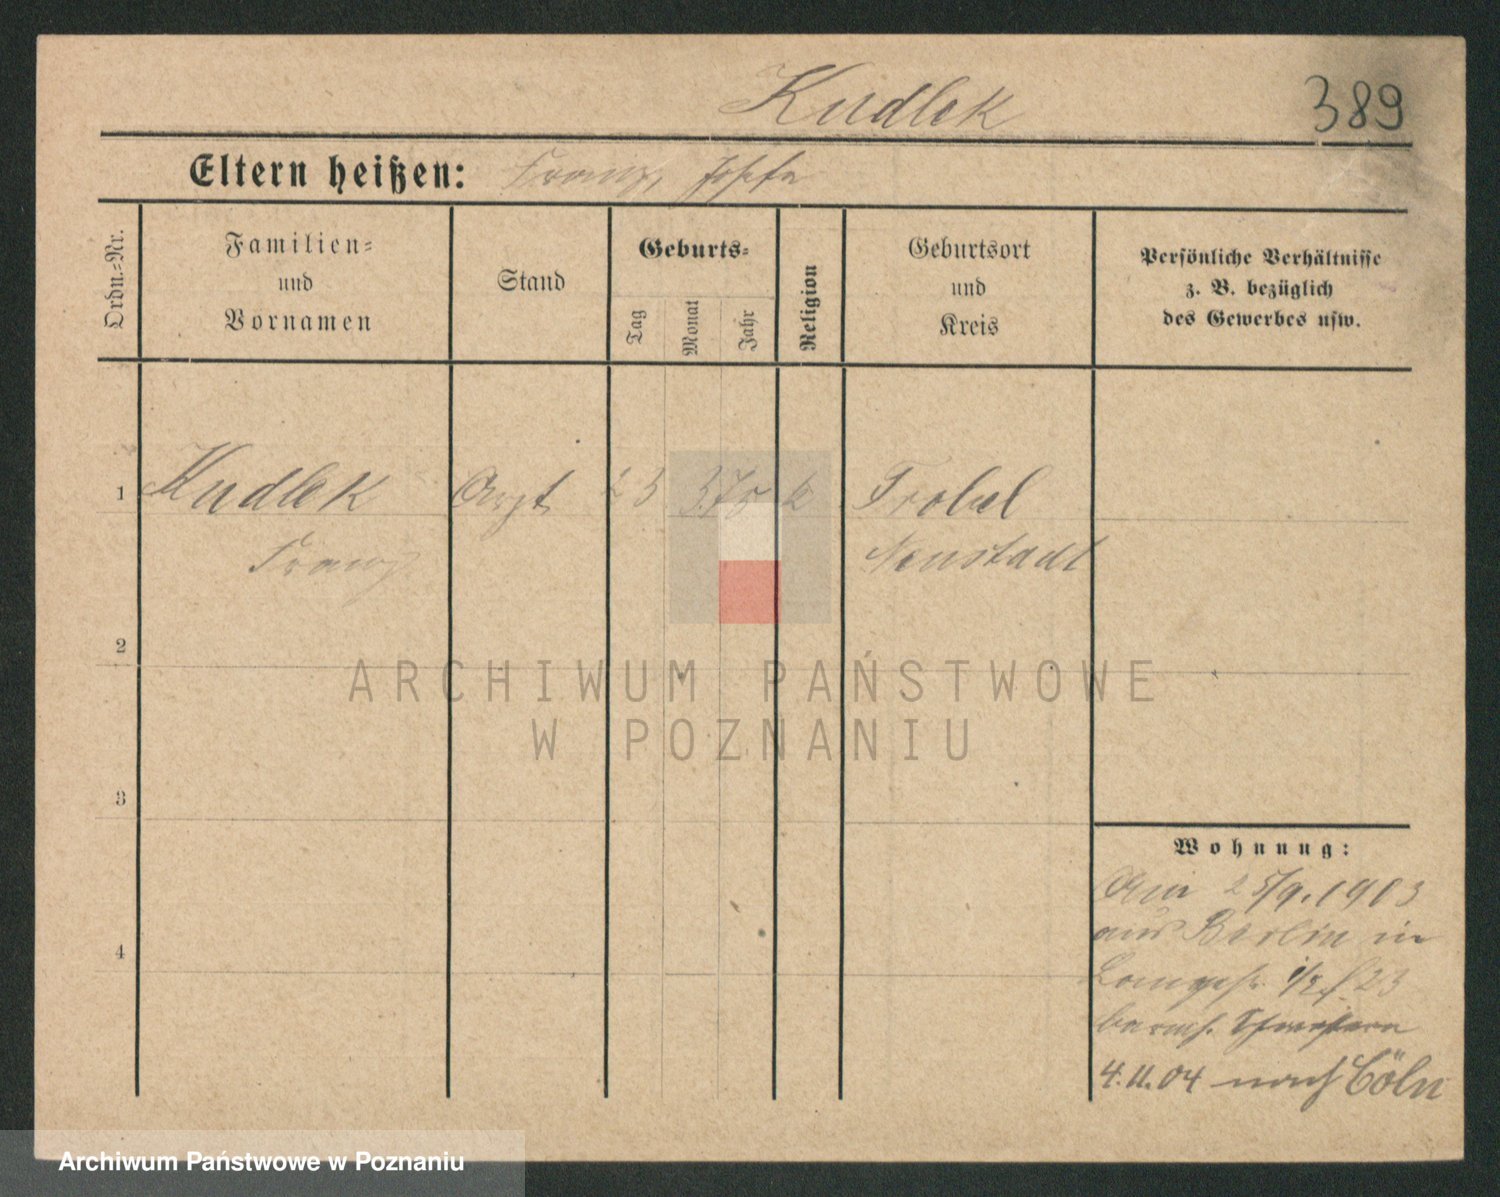 Kudlek
389
Eltern heißen: Franz, Josefa
Ordn.=Nr.
Familien=
und
Vornamen
Stand
Geburts=
Tag
Monat
Jahr
Religion
Geburtsort
und
Kreis
Persönliche Verhältnisse
z. B. bezüglich
des Gewerbes usw.
1 Kudlek Arzt 23 3 75 k Frobel
Franz Neustadt
2
3
4
ARCHIWUM PAŃSTWOWE
W POZNANIU
Wohnung:
Am 25/9.1903
aus Berlin in
23
barmh. Schwestern
4.11.04 nach Cöln
Archiwum Państwowe w Poznaniu